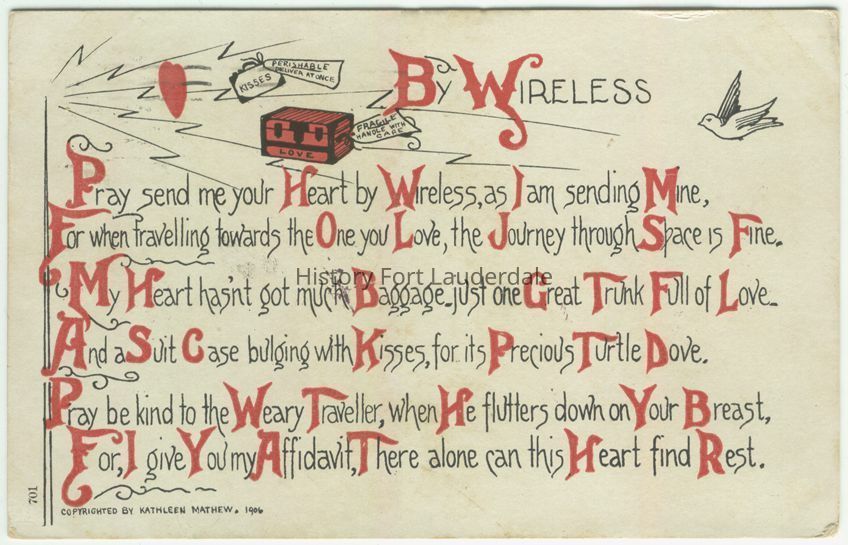 PERISHABLE
DELIVER AT ONCE
KISSES
By Wireless
FRAGILE
HANDLE WITH
CARE
LOVE
Pray send me your Heart by Wireless, as I am sending Mine,
For when Travelling towards the One you Love, the Journey through Space is Fine.
History Fort Lauderdale
My Heart hasn't got much Baggage just one Great Trunk Full of Love.
And a Suit Case bulging with Kisses, for its Precious Turtle Dove.
Pray be kind to the Weary Traveller, when He flutters down on Your Breast,
For, I give You my Affidavit, There alone can this Heart find Rest.
701
COPYRIGHTED BY KATHLEEN MATHEW. 1906